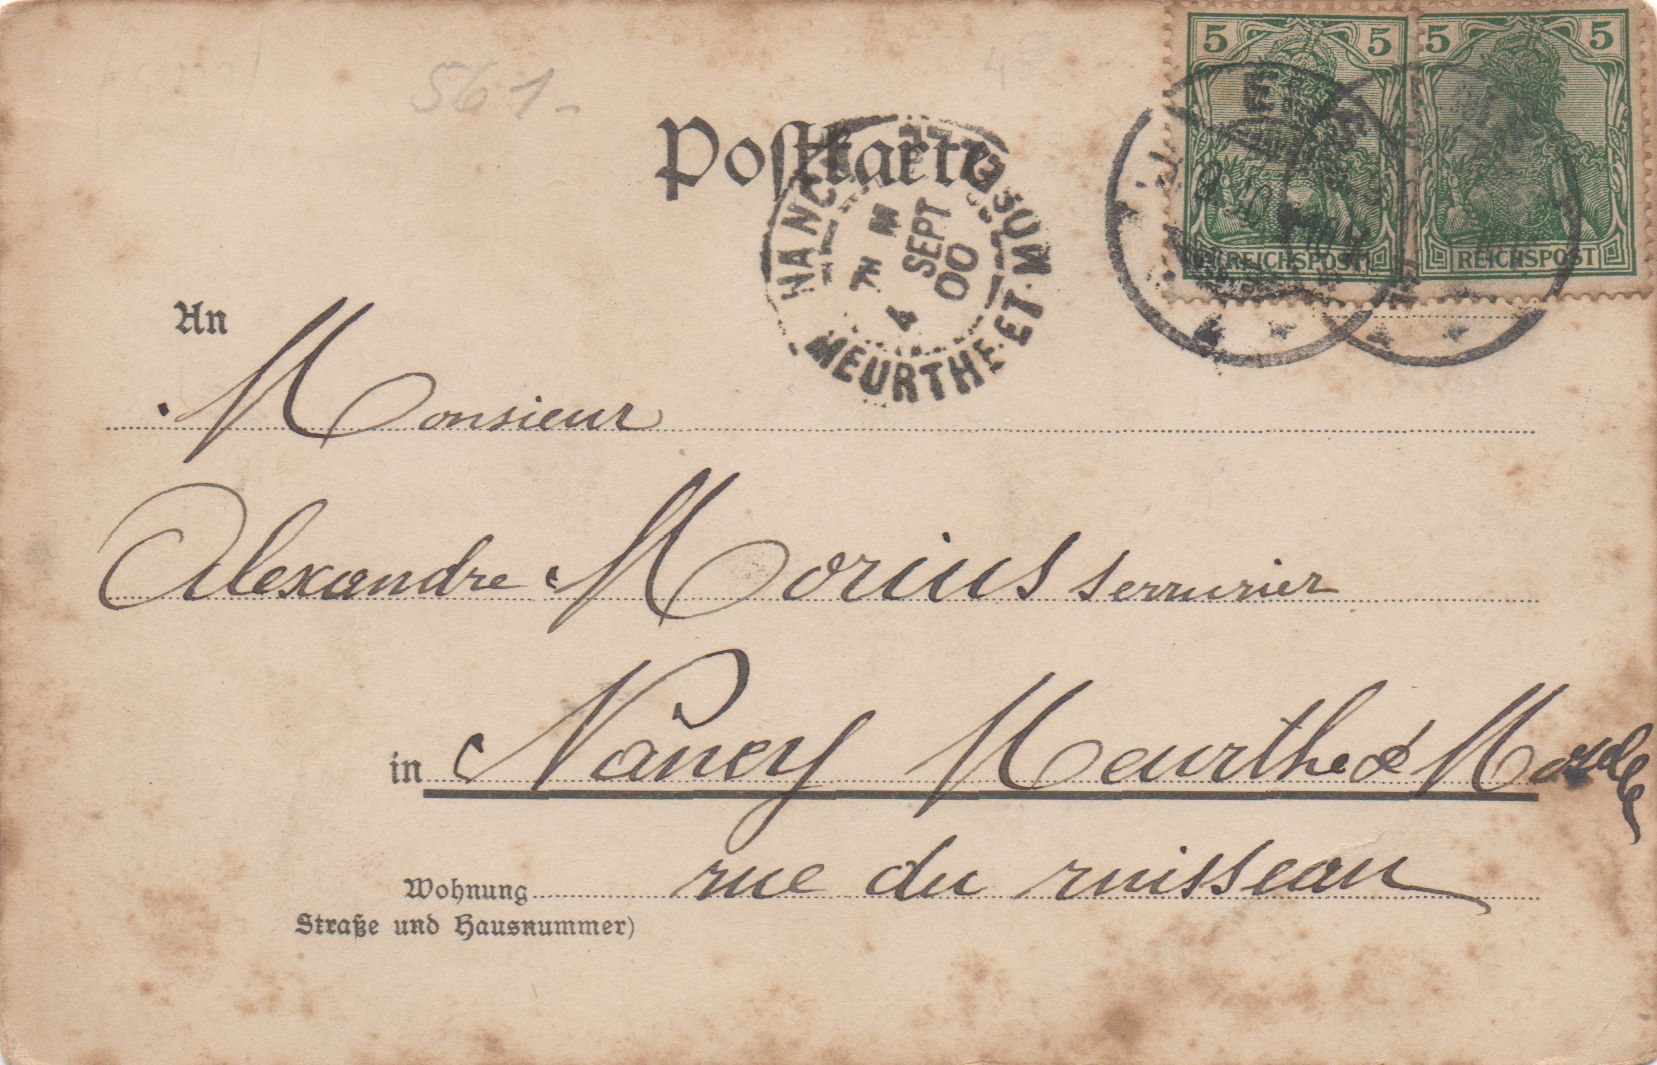 561-
Postkarte
5 5 5 5
REICHSPOST REICHSPOST
NANCY
7H M
4 SEPT 00
MEURTHE-ET-M
An
Monsieur
Alexandre Morius serrurier
in Nancy Meurthe & Moselle
Wohnung rue du ruisseau
Straße und Hausnummer)